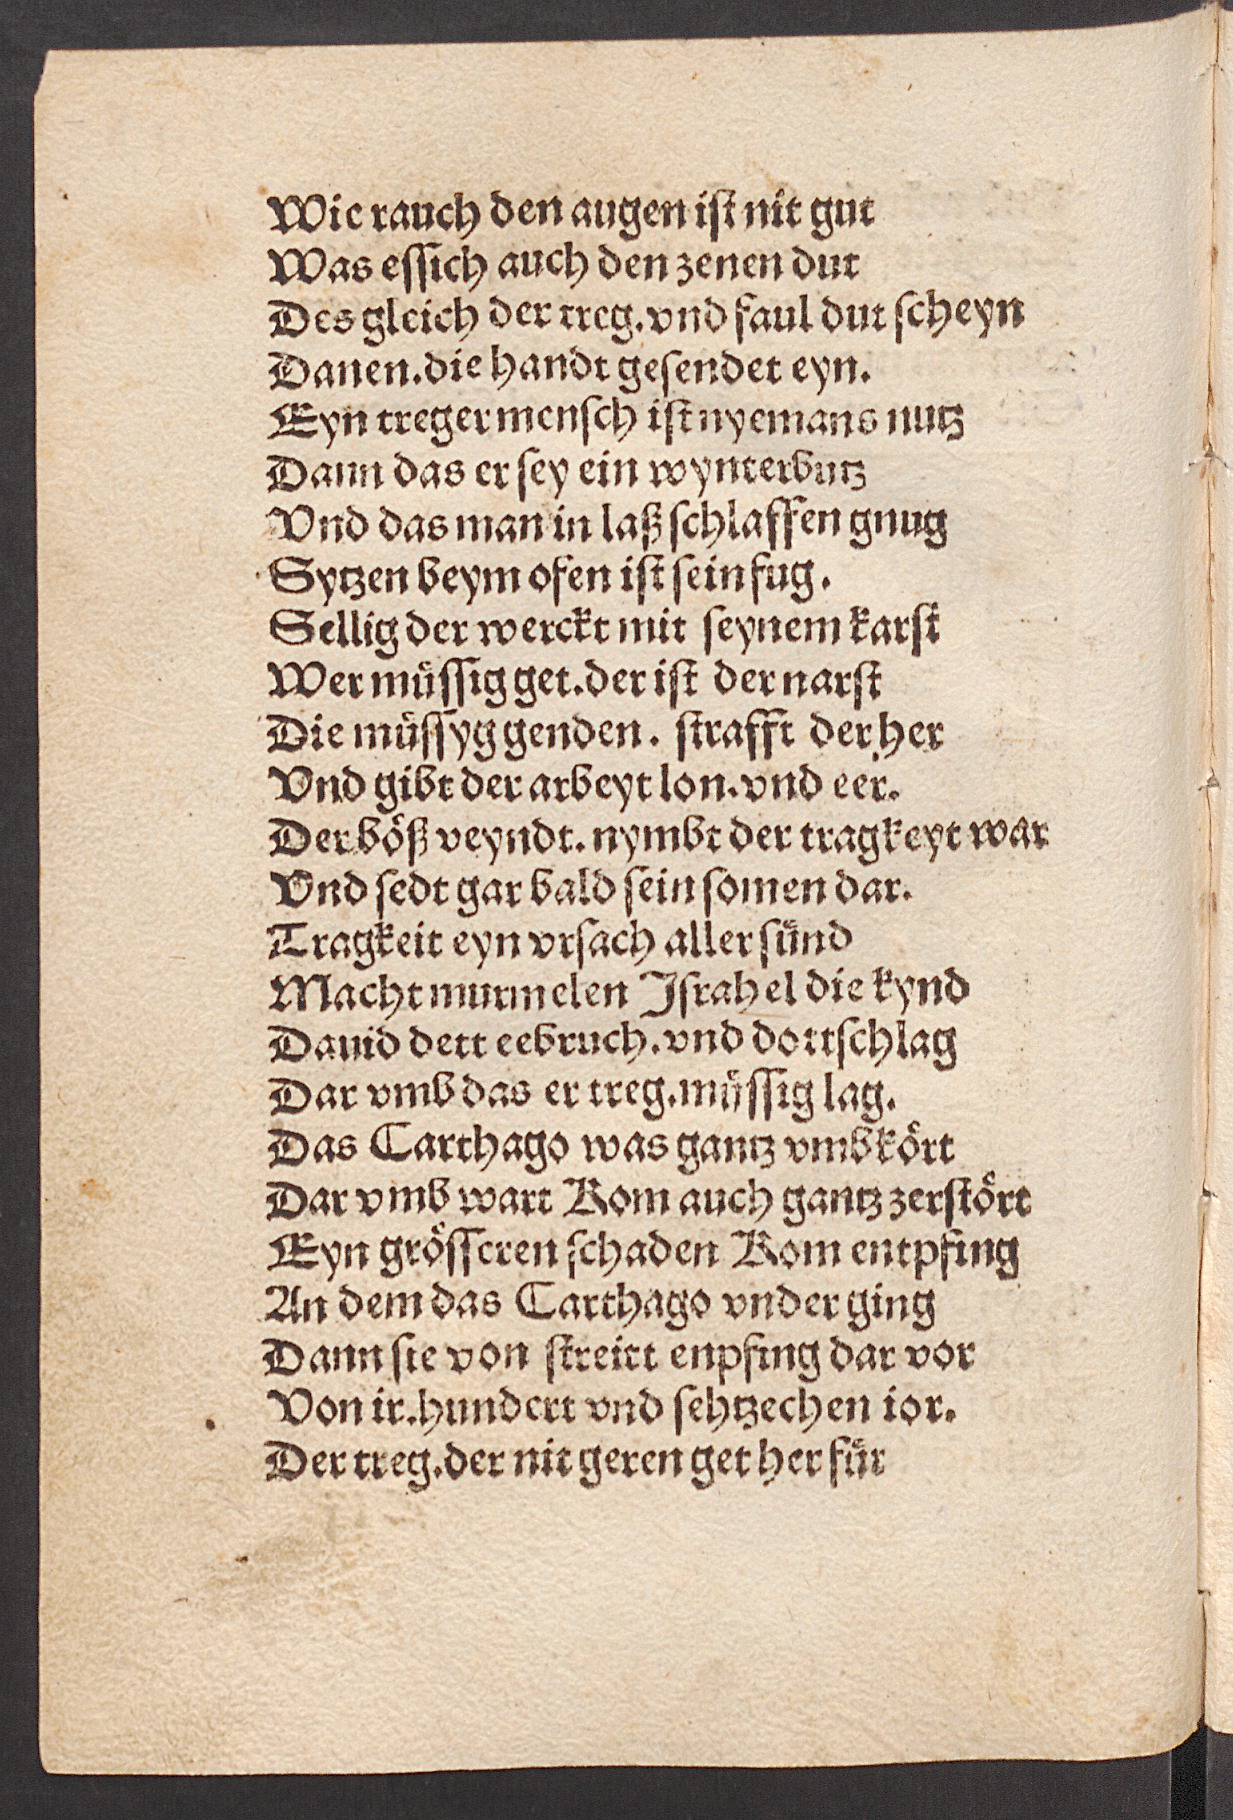 Wie rauch den augen ist nit gut
Was essich auch den zenen dut
Des gleich der treg. vnd faul dut scheyn
Danen. die handt gesendet eyn.
Eyn treger mensch ist nyemans nutz
Dann das er sey ein wynterbutz
Vnd das man in laß schlaffen gnug
Sytzen beym ofen ist sein fug.
Sellig der werckt mit seynem karst
Wer müssig get. der ist der narst
Die müssyg genden. strafft der her
Vnd gibt der arbeyt lon. vnd eer.
Der böß veyndt. nymbt der tragkeyt war
Vnd sedt gar bald sein somen dar.
Tragkeit eyn vrsach aller sünd
Macht murmelen Israhel die kynd
Dauid dett eebruch. vnd dottschlag
Dar vmb das er treg. müssig lag.
Das Carthago was gantz vmbkört
Dar vmb wart Rom auch gantz zerstört
Eyn grösseren schaden Rom entpfing
An dem das Carthago vnder ging
Dann sie von streitt enpfing dar vor
Von ir. hundert vnd sehtzechen ior.
Der treg. der nit geren get her für